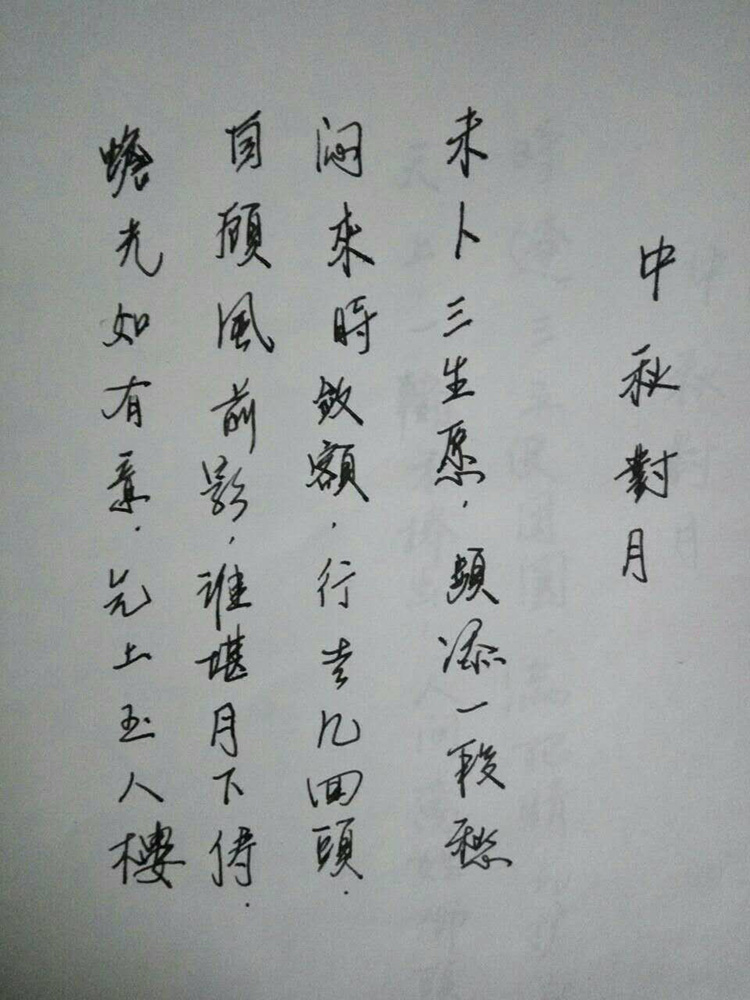 中秋對月
未卜三生愿，頻添一段愁
悶來時斂額，行去几回頭．
自顧風前影，誰堪月下儔．
蟾光如有意．先上玉人樓